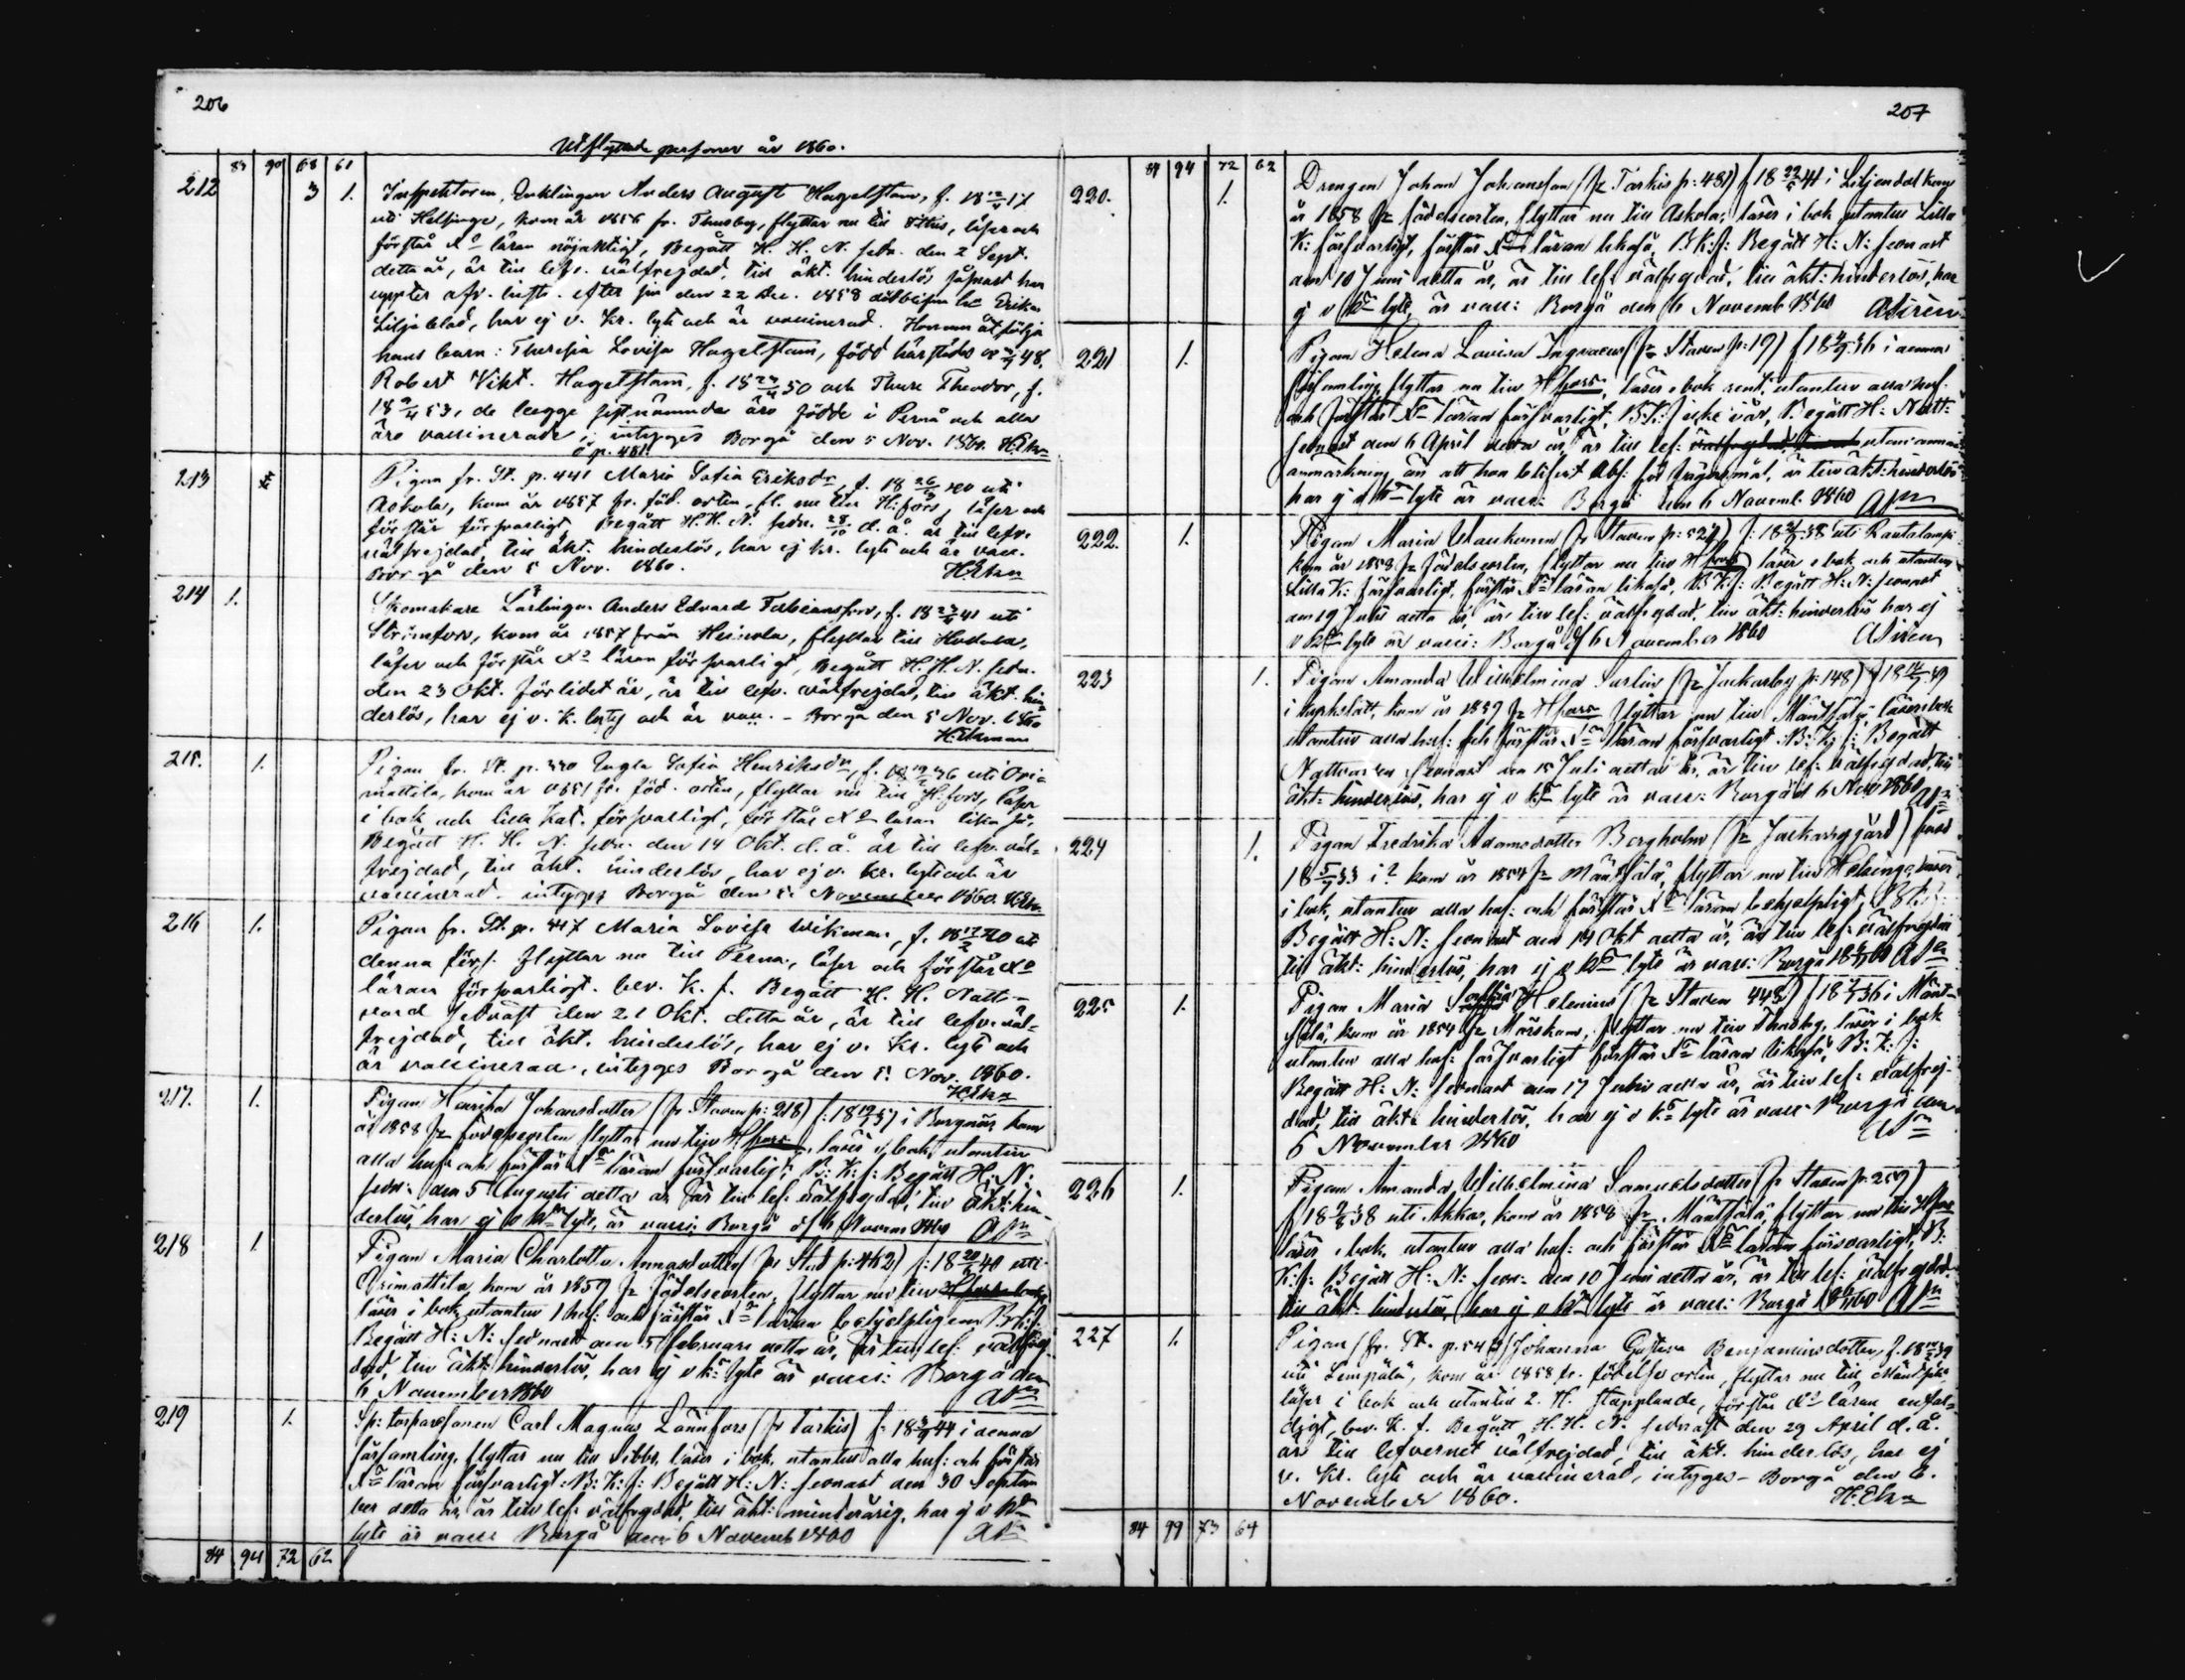 206
Utflyttade personer år 1860.
83 90 68 61
212 3 1. Inspektoren, Enklingen Anders August Hagelstam, f. 18 17
uti Helsinge, kom år 1856 fr. Thusby, flyttar nu till, läser och
förstår Xd läran nöjaktigt, Begått H. H. N. sedn. den 2 Sept.
detta år, är till lefv. välfrejdad, till äkt. hinderlös såsnart han
uppter afv. skift. efter sin den 22 Dec. 1858 död blifna hu Erika
Liljeblad, har ej v. Kr. lyte och är vaccinerad. Honom åtfölja
hans barn: Theresia Lovisa Hagelstam, född härstädes 48,
Robert Vikt. Hagelstam, f. 18 50 och Thure Theodor, f.
18 53, de begge sistnämnda äro födde i Pernå och alla
äro vaccinerade, intygas Borgå den 5 Nov. 1860. H. Ekn
213 Pigan fr. St. p. 441 Maria Sofia Eriksdr, f. 18 26/3 40 uti
Askola, kom år 1857 fr. föd. orten, fl. nu till H:fors, läser och
förstår försvarligt, Begått H. H. N. sedn. 28/10 d. å. är till lefv.
välfrejdad, till äkt. hinderlös, har ej Kr. lyte och är vacc.
Borgå den 5 Nov. 1860. H Ekn
214 1. Skomakare Lärlingen Anders Edvard Fabiansson, f. 18 41 uti
Strömfors, kom år 1857 från Heinola, flyttar till,
läser och förstår Xd läran försvarligt, Begått H. H. N. sedn.
den 23 Okt. förlidet år, är till lefv. välfrejdad, till äkt. hin-
derlös, har ej v. K. lyte och är vacc. - Borgå den 5 Nov. 1860
H. Ekman
215. 1. Pigan fr. St. p. 320 Engla Sofia Henriksdr, f. 18 36 uti Ori-
mattila, kom år 1851 fr. föd. orten, flyttar nu till H:fors, läser
i bok och lilla Kat. försvarligt, förstår Xd läran lika så,
Begått H. H. N. sedn. den 14 Okt. d. å. är till lefv. väl-
frejdad, till äkt. hinderlös, har ej v. Kr. lyte och är
vaccinerad. intygas Borgå den 5. November 1860. H. Ekn
216 1. Pigan fr. St. p. 447 Maria Lovisa Wikman, f. 18 40 uti
denna förs. flyttar nu till Perna, läser och förstår Xd
läran försvarligt. bev. K. f. Begått H. H. Natt-
vard sednast den 21 Okt. detta år, är till lefv. väl-
frejdad, till äkt. hinderlös, har ej v. Kr. lyte och
är vaccinerad, intygas Borgå den 5. Nov. 1860.
H Ekn
217. 1. Pigan Henrika Johansdotter (fr Staden p: 218) f: 18 37 i Borgnäs kom
år 1858 fr födelseorten flyttar nu till H:fors, läser i bok, utantill
alla huf. och förstår Xd läran försvarligt; B: K: f: Begått H: N:
sedn: den 5 Augusti detta år, är till lef: välfrejdad, till äkt: hin-
derlös, har ej v Kr lyte, är vacci: Borgå d. 6 Novem 1860
218 1 Pigan Maria Charlotta Annasdotter (fr Stad p: 462) f: 18 40 uti
Orimattila, kom år 1859 fr födelseorten, flyttar nu till
läser i bok, utantill 1 huf: och förstår Xd läran behjelpligen B: K: f:
Begått H: N: sednast den 5 Februari detta år, är till lef: välfrej-
dad, till äkt: hinderlös, har ej v K: lyte är vacci: Borgå den
6 November 1860
219 1. Sp: torparesonen Carl Magnus Lönnfors (fr Tarkis) f: 18 44 i denna
församling, flyttar nu till Sibbo, läser i bok, utantill alla huf: och förstår
Xd läran försvarligt. B: K: f: Begått H: N: sednast den 30 Septem
ber detta år, är till lef: välfrejdad, till äkt: minderårig, har ej v Kr
lyte är vacci Borgå den 6 Novemb 1860
84 94 72 62
207
84 94 72 62
220. 1. Drengen Johan Johansson (fr Tarkis p: 481) f 18 22/5 41 i Liljendal kom
år 1858 fr födelseorten, flyttar nu till Askola, läser i bok, utantill Lilla
K: försvarligt, förstår Xd läran likaså, B: K: f: Begått H: N: sednast
den 10 Juni detta år, är till lef: välfrejdad, till äkt: hinderlös, har
ej v Kr lyte, är vacc: Borgå den 6 Novemb 1860 A Sirén
221 1. Pigan Helena Lovisa Ingvaeus (fr Staden p: 19) f 18 36 i denna
församling flyttar nu till H:fors, läser i bok rent, utantill alla huf.
och förstår Xd läran försvarligt; B: K: f icke här, Begått H: Natt:
sednast den 6 April detta år, är till lef: utan annan
anmärkning än att hon blifvit Abs: för lägersmål, är till äkt: hinderlös
har ej v Kr lyte är vacc: Borgå den 6 Novemb. 1860
222. 1. Pigan Maria Maukonen (fr Staden p: 527) f: 18 38 uti Rautalampi
kom år 1858 fr födelseorten, flyttar nu till H:fors läser i bok och utantill
Lilla K: försvarligt, förstår Xd läran likaså, B: K: f: Begått H: N: sednast
den 19 Juli detta år, är till lef: välfrejdad, till äkt: hinderlös har ej
v Kr lyte är vacci: Borgå d 6 November 1860 A Sirén
223 1. Pigan Amanda Wilhelmina Sarlin (fr Jackarby p: 148) f 18 39
i kyrkslätt, kom år 1859 fr H:fors flyttar nu till Mäntsälä, läser i bok
utantill alla huf: och förstår Xd läran försvarligt. B: K: f: Begått
Nattvarden sednast den 15 Juli detta år, är till lef: välfrejdad, till
äkt: hinderlös, har ej v Kr lyte är vacc: Borgå d 6 Nov 1860
224 1. Pigan Fredrika Adamsdotter Borgholm (fr Jackarbygård) född
18 5/7 33 i? kom år 1854 fr Mäntsälä, flyttar nu till Helsinge, läser
i bok, utantill alla huf: och förstår Xd läran behjelpligt, B: K: f:
Begått H: N: sednast den 14 Okt detta år, är till lef: välfrejdad
till äkt: hinderlös, har ej v Kr lyte är vacc: Borgå 18 60
225 1. Pigan Maria Sophia Helenius (fr Staden 443) f 18 36 i Mänt-
sälä, kom år 1854 fr Mörskom, flyttar nu till Thusby, läser i bok
utantill alla huf: försvarligt förstår Xd läran likaså, B: K: f:
Begått H: N: sednast den 17 Juni detta år, är till lef: välfrej-
dad, till äkt: hinderlös, har ej v Kr lyte är vacc: Borgå den
6 November 1860
226 1. Pigan Amanda Wilhelmina Samuelsdotter (fr Staden p: 259)
f 18 38 uti Akkas, kom år 1858 fr Mäntsälä, flyttar nu till H:fors
läser i bok, utantill alla huf: och förstår Xd läran försvarligt, B:
K: f: Begått H: N: sedn: den 10 Juni detta år, är till lef: välfrejdad
till äkt: hinderlös, har ej v Kr lyte är vacc: Borgå 60
227 1. Pigan (fr. St. p. 543) Johanna Gustava Benjaminsdotter, f. 18 39
uti Lempälä, kom år 1858 fr. födelse orten, flyttar nu till Mäntsälä
läser i bok och utantill 2. H. stapplande, förstår Xd läran enfal-
digt, bev. K. f. Begått H. H. N. sednast den 29 April d. å.
är till lefvernet välfrejdad, till äkt. hinderlös, har ej
v. Kr. lyte och är vaccinerad, intygas - Borgå den 6.
November 1860. H. Ekn
84 99 73 64